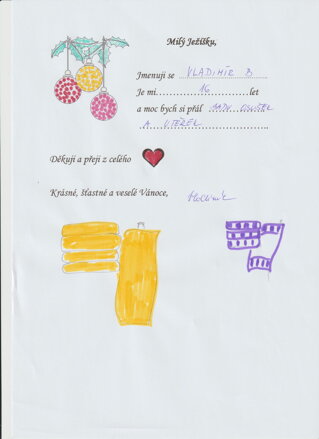 Milý Ježíšku,
Jmenuji se VLADIMÍR B.
Je mi 16 let
a moc bych si přál SADU OSUŠEK
A UTĚREK
Děkuji a přeji z celého
Krásné, šťastné a veselé Vánoce,
Vladimír